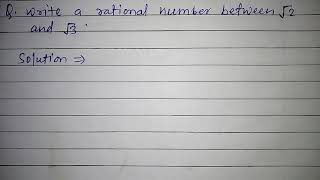 Q. Write a rational number between √2
and √3.
Solution ⇒